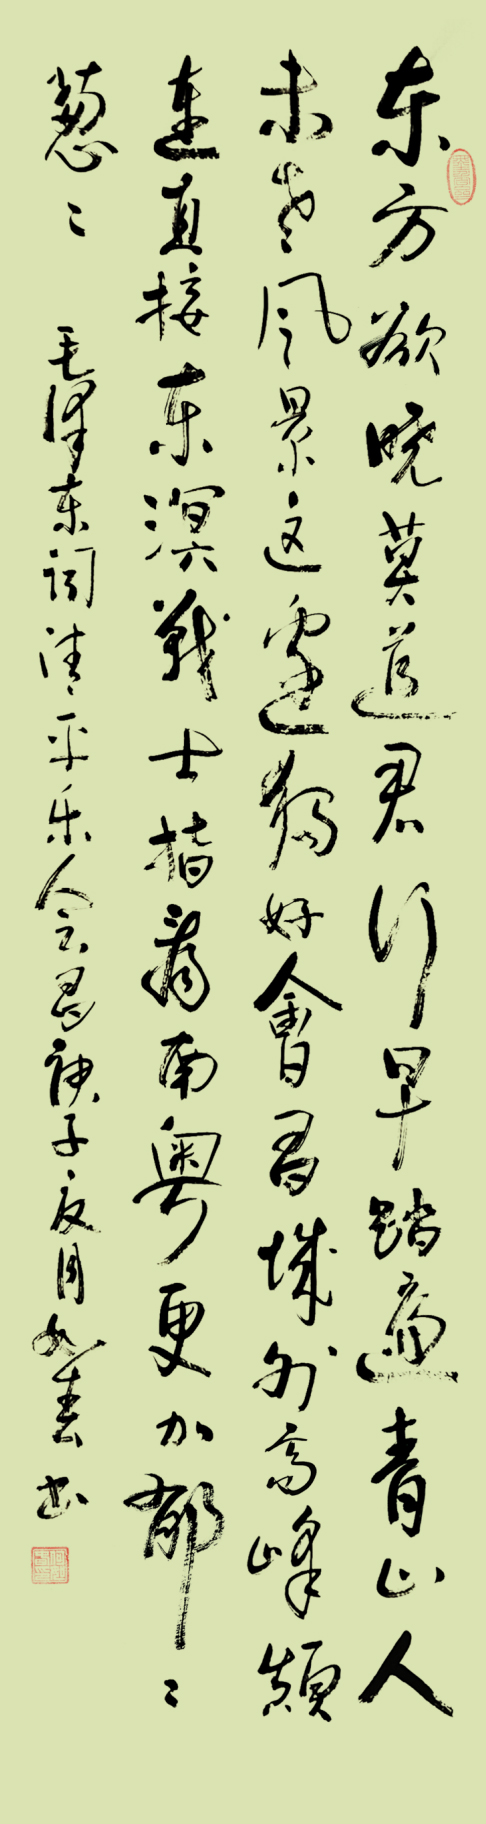 东方欲晓莫道君行早踏遍青山人
未老风景这邊獨好會昌城外高峰颠
连直接东溟戰士指看南粤更加郁〻
葱〻 毛泽东词清平乐会昌庚子夏月如春书